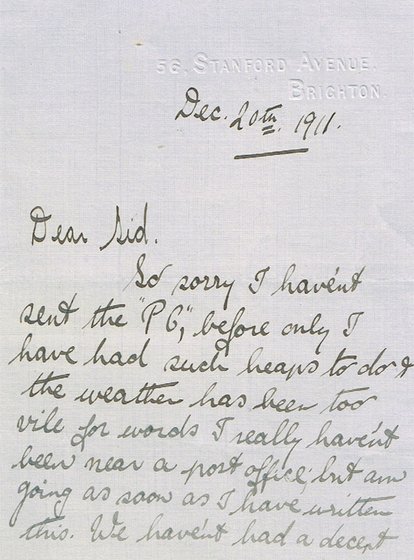 56, STANFORD AVENUE.
BRIGHTON.
Dec. 20th. 1911.
Dear Sid.
So sorry I haven't
sent the "P6," before only I
have had such heaps to do &
the weather has been too
vile for words I really haven't
been near a post office but am
going as soon as I have written
this. We haven't had a decent